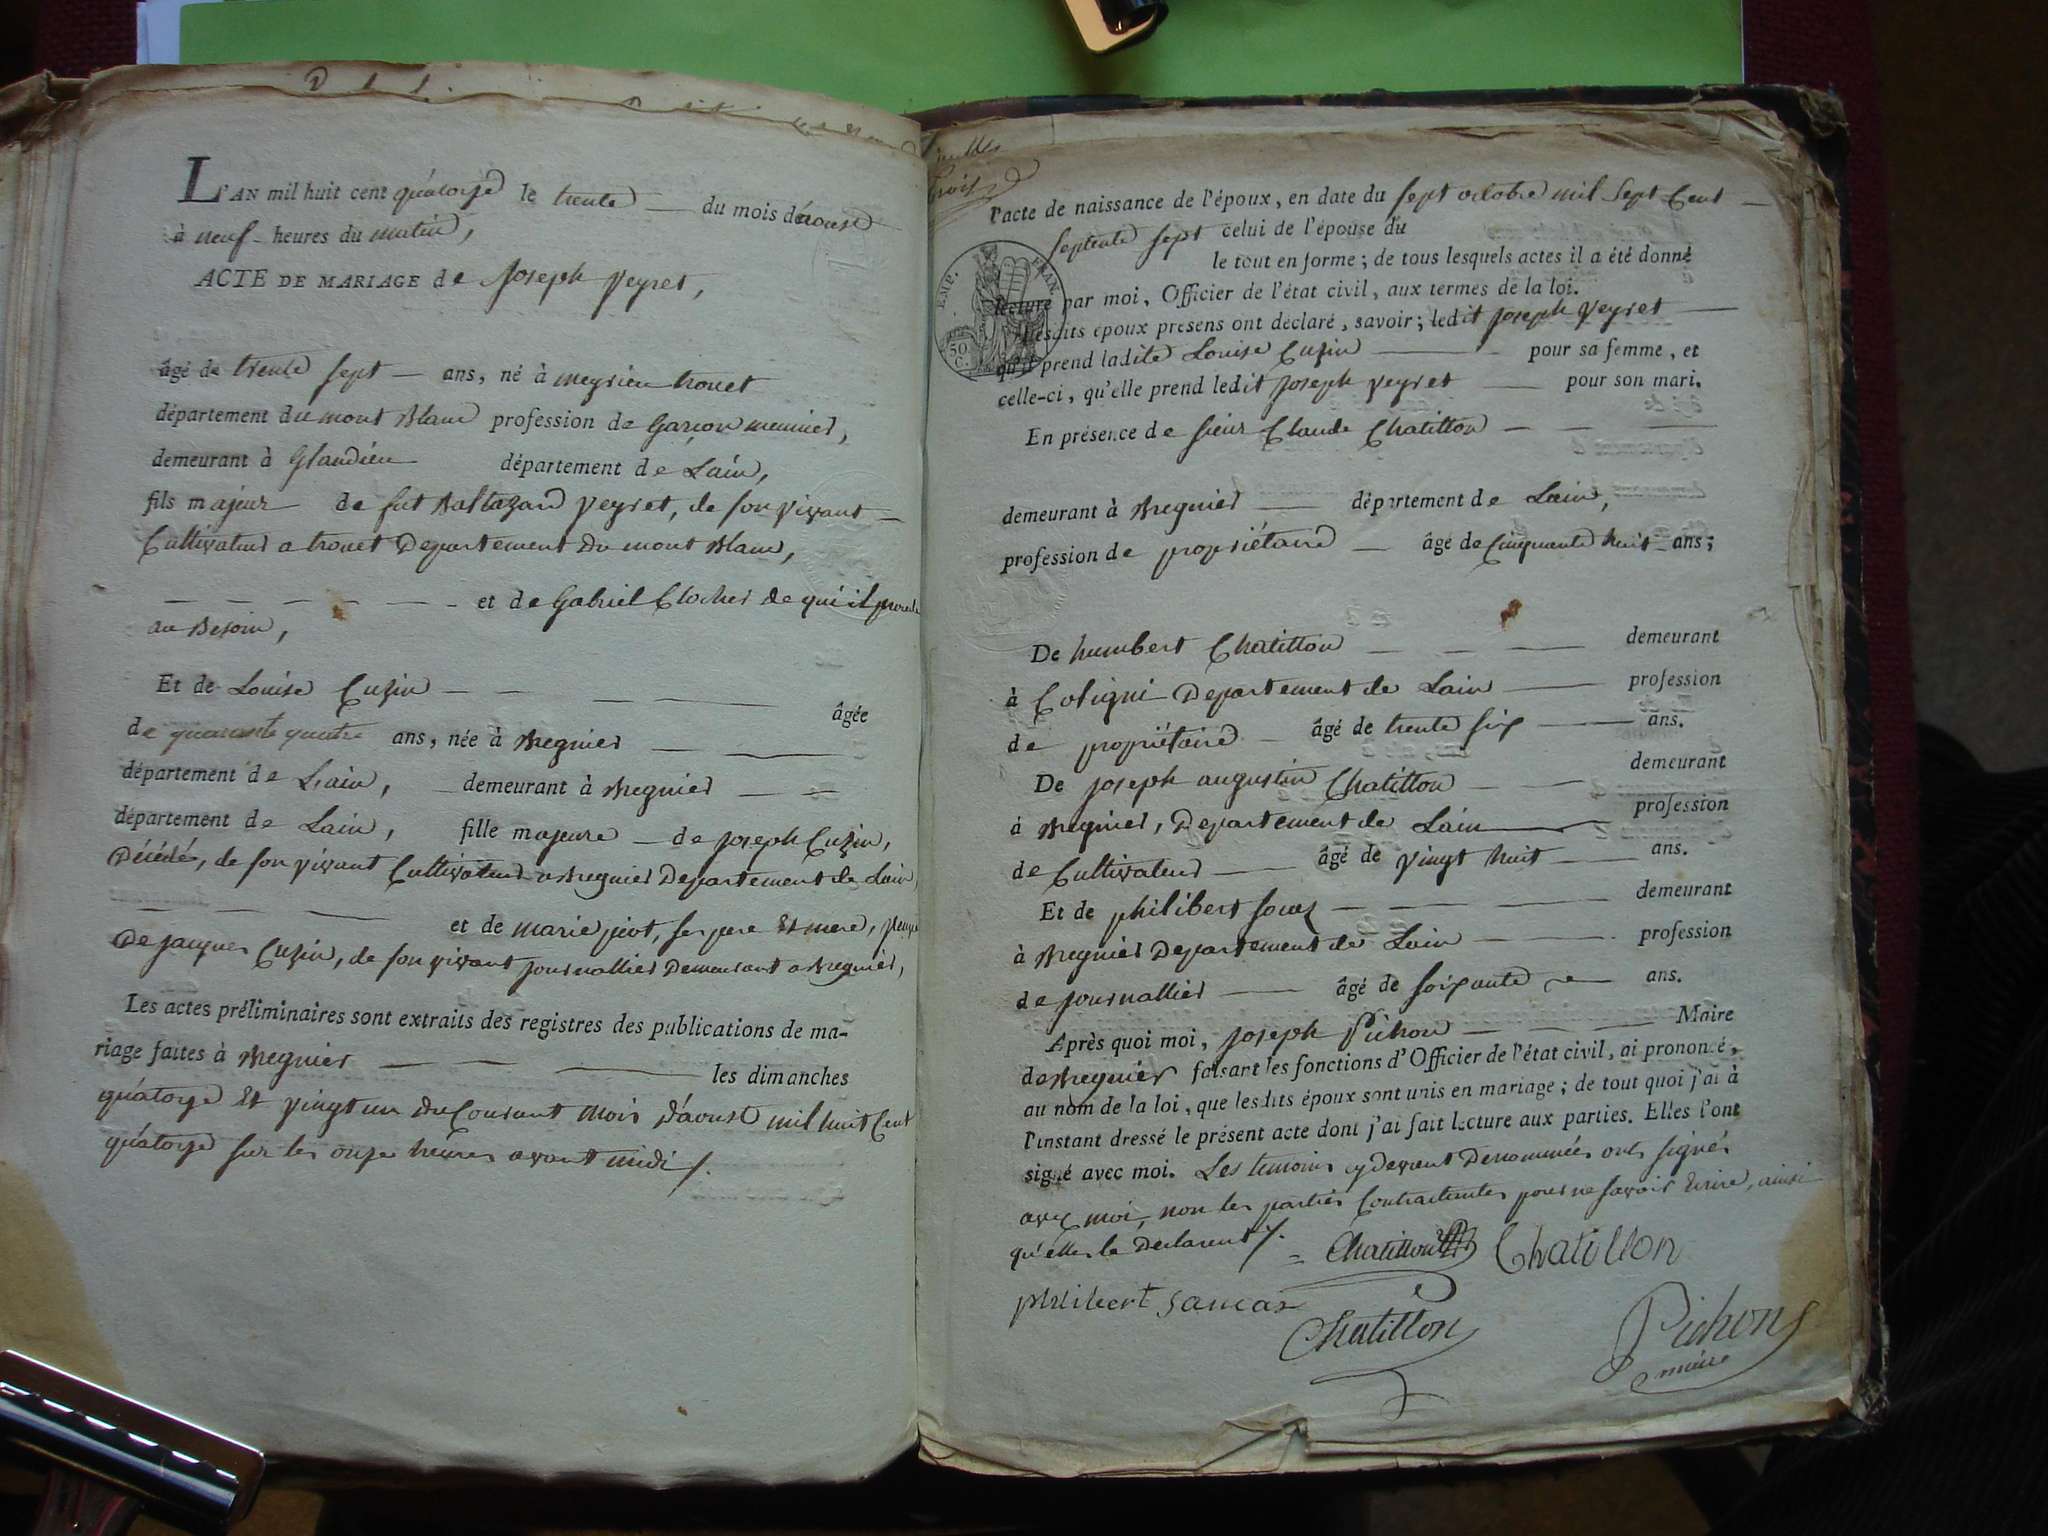 L'AN mil huit cent quatorze le trente du mois d'aoust
à neuf heures du matin,
ACTE DE MARIAGE de Joseph Veyret,
âgé de trente sept ans, né à meyrieu trouet
département du mont Blanc profession de Garçon meunier,
demeurant à Glandieu département de Lain,
fils majeur de fut Baltazard Veyret, de son vivant
Cultivateur a trouet Departement du mont Blanc,
et de Gabriel Clocher de qui il procede
au Besoin,
Et de Louise Cuzin
âgée
de quarante quatre ans, née à Bregnier
département de Lain, demeurant à Bregnier
département de Lain, fille majeure de Joseph Cuzin,
Décédé, de son vivant Cultivateur a Bregnier Departement de Lain,
et de marie pivot, ses pere Et mere, veuve
De jacques Cuzin, de son vivant journallier Demeurant a Bregnier,
Les actes préliminaires sont extraits des registres des publications de ma-
riage faites à Bregnier les dimanches
quatorze Et vingt un du Courant mois d'aoust mil huit Cent
quatorze sur les onze heures avant midi /.
trois
l'acte de naissance de l'époux, en date du sept octobre mil sept Cent
septente sept celui de l'épouse du
le tout en forme ; de tous lesquels actes il a été donné
EMP. FRAN.
lecture par moi, Officier de l'état civil, aux termes de la loi.
Lesdits époux présens ont déclaré, savoir ; ledit joseph Veyret
50 C.
qu'il prend ladite Louise Cuzin pour sa femme, et
celle-ci, qu'elle prend ledit joseph veyret pour son mari.
En présence de sieur Claude Chatillon
demeurant à Bregnier département de Lain,
profession de propriétaire âgé de Cinquante huit ans ;
De humbert Chatillon demeurant
à Coligni Departement de Lain profession
de propriétaire âgé de trente six ans.
De joseph augustin Chatillon demeurant
à Bregnier, Departement de Lain profession
de Cultivateur âgé de vingt huit ans.
Et de philibert demeurant
à Bregnier Departement de Lain profession
de journallier âgé de soixante ans.
Après quoi moi, joseph Pichon Maire
de Bregnier faisant les fonctions d'Officier de l'état civil, ai prononcé,
au nom de la loi, que lesdits époux sont unis en mariage ; de tout quoi j'ai à
l'instant dressé le présent acte dont j'ai fait lecture aux parties. Elles l'ont
signé avec moi. Les temoins cy devant Denommées ont signés
avec moi, non les parties Contractantes pour ne savoir Ecrire, ainsi
qu'elles le Declarent /. Chatillon Chatillon
philibert
Chatillon Pichon
maire